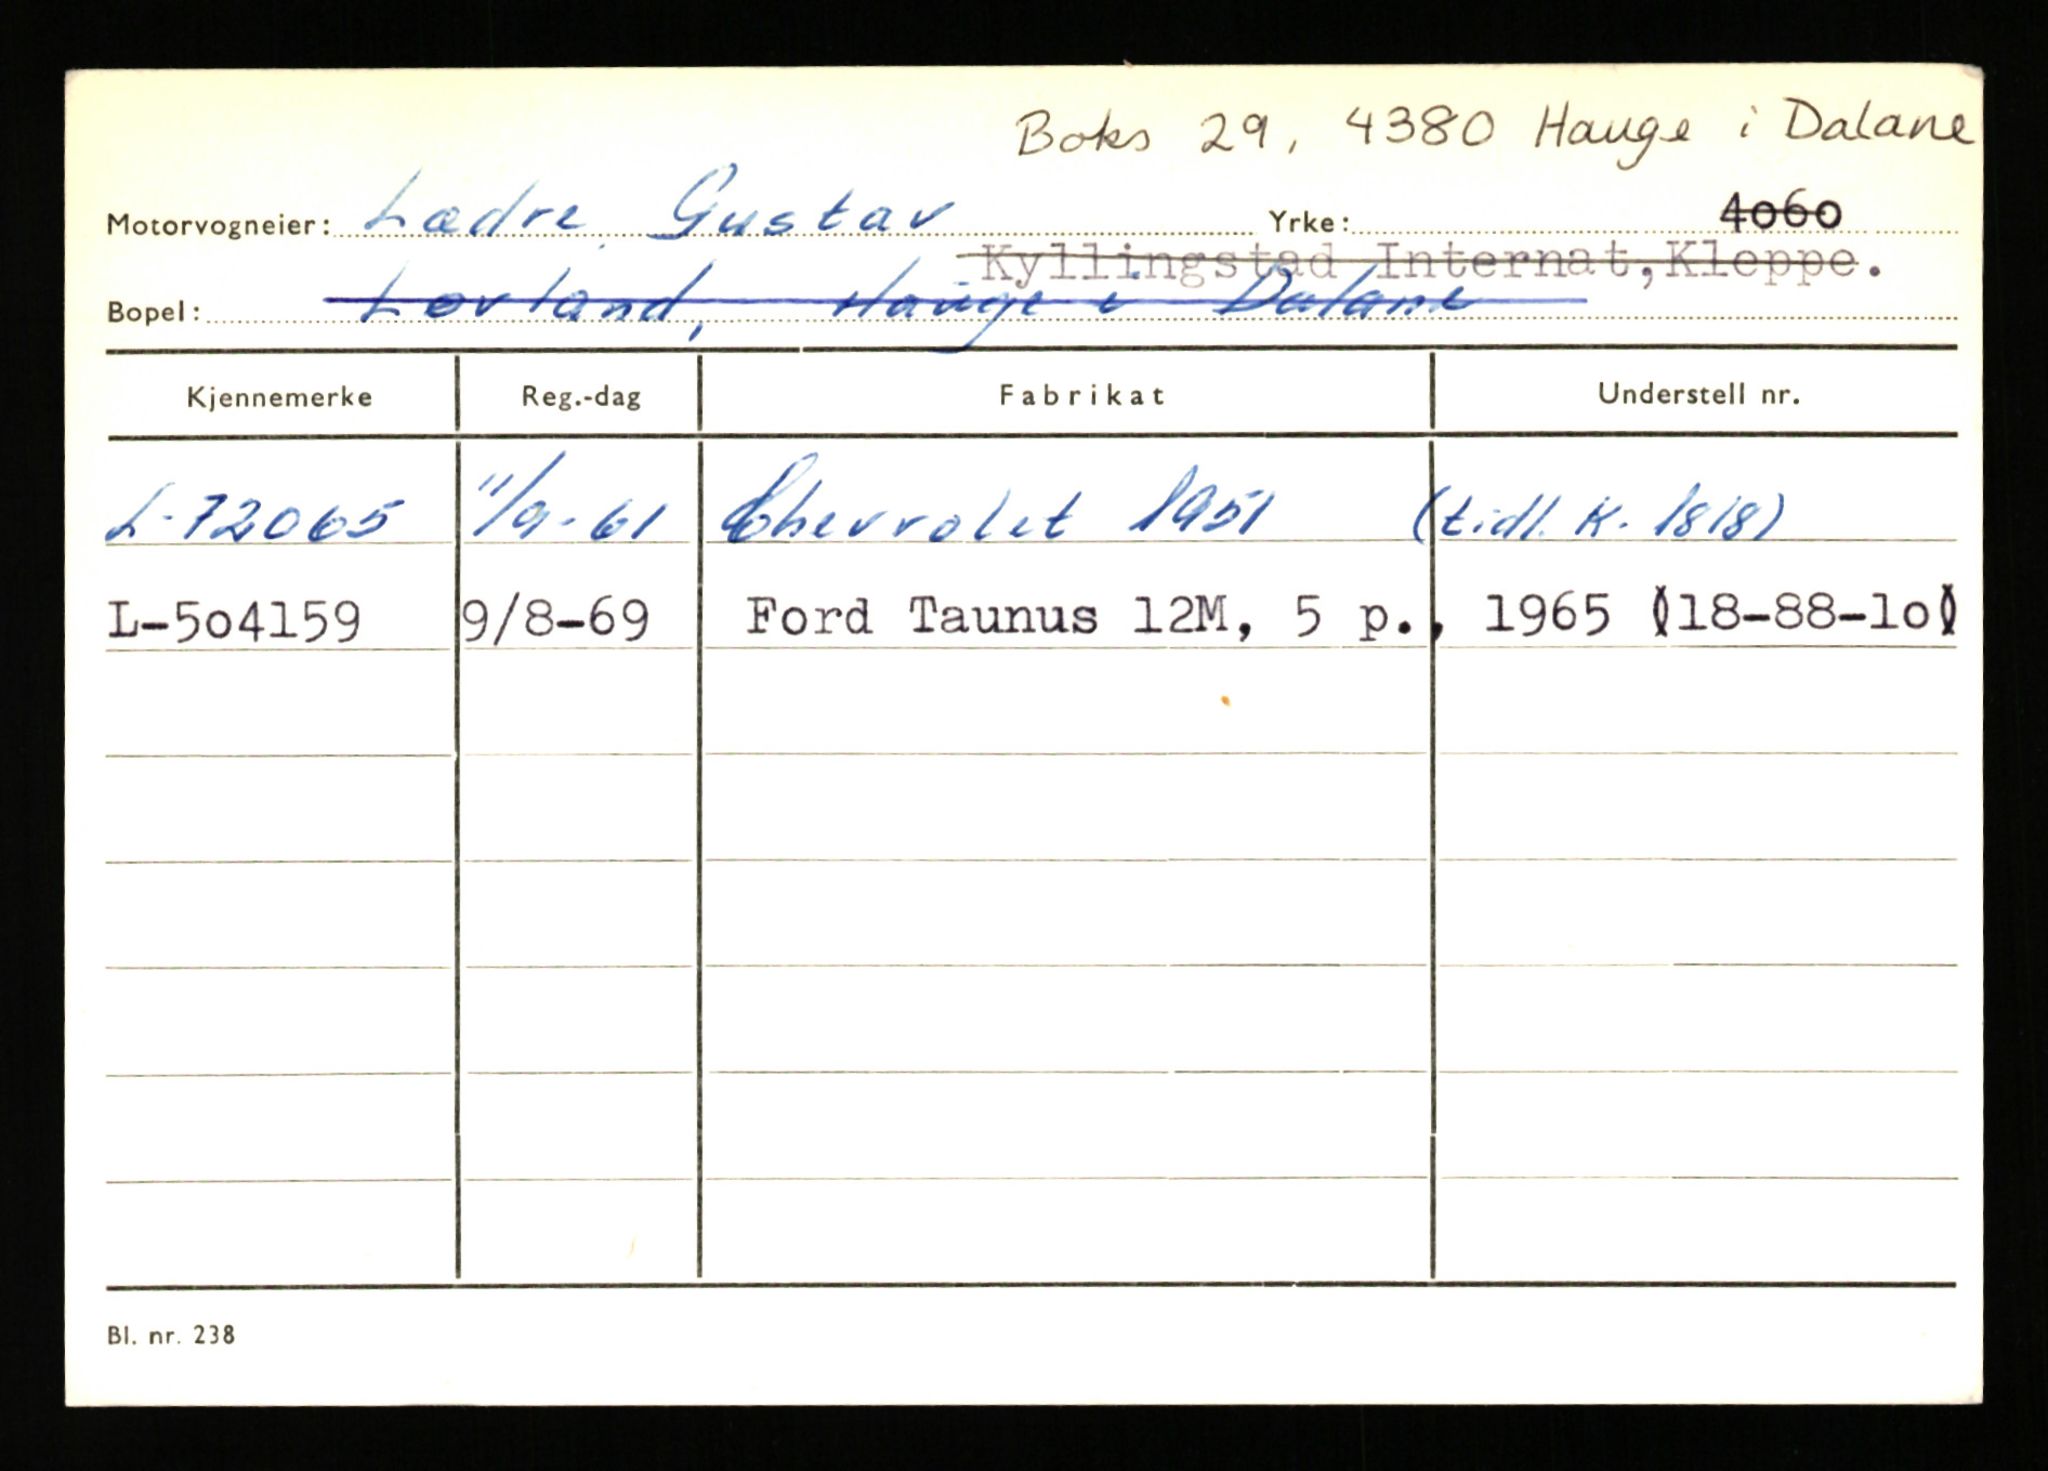 Boks 29, 4380 Hauge i Dalane
Motorvogneier: Lædre Gustav Yrke: 4060
Kyllingstad Internat,Kleppe.
Bopel: Løvland, Hauge i Dalane
Kjennemerke Reg.-dag Fabrikat Understell nr.
L-72065 11/9-61 Chevrolet 1951 (tidl. K. 1818)
L-504159 9/8-69 Ford Taunus 12M, 5 p., 1965 (18-88-10)
Bl. nr. 238